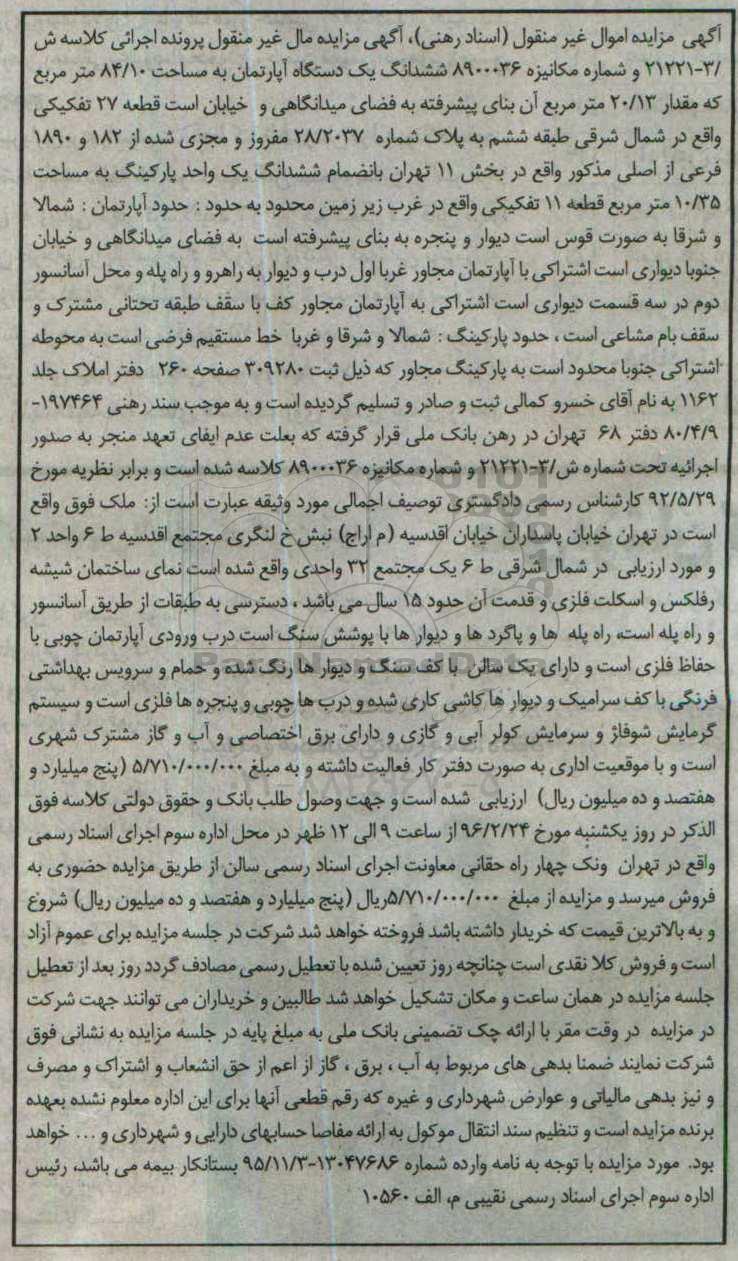 آگهی مزایده اموال غیر منقول (اسناد رهنی)، آگهی مزایده مال غیر منقول پرونده اجرائی کلاسه ش
/۳-۲۱۲۲۱ و شماره مکانیزه ۸۹۰۰۰۳۶ ششدانگ یک دستگاه آپارتمان به مساحت ۸۴/۱۰ متر مربع
که مقدار ۲۰/۱۳ متر مربع آن بنای پیشرفته به فضای میدانگاهی و خیابان است قطعه ۲۷ تفکیکی
واقع در شمال شرقی طبقه ششم به پلاک شماره ۲۸/۲۰۳۷ مفروز و مجزی شده از ۱۸۲ و ۱۸۹۰
فرعی از اصلی مذکور واقع در بخش ۱۱ تهران بانضمام ششدانگ یک واحد پارکینگ به مساحت
۱۰/۳۵ متر مربع قطعه ۱۱ تفکیکی واقع در غرب زیر زمین محدود به حدود : حدود آپارتمان : شمالا
و شرقا به صورت قوس است دیوار و پنجره به بنای پیشرفته است به فضای میدانگاهی و خیابان
جنوبا دیواری است اشتراکی با آپارتمان مجاور غربا اول درب و دیوار به راهرو و راه پله و محل آسانسور
دوم در سه قسمت دیواری است اشتراکی به آپارتمان مجاور کف با سقف طبقه تحتانی مشترک و
سقف بام مشاعی است ، حدود پارکینگ : شمالا و شرقا و غربا خط مستقیم فرضی است به محوطه
اشتراکی جنوبا محدود است به پارکینگ مجاور که ذیل ثبت ۳۰۹۲۸۰ صفحه ۲۶۰ دفتر املاک جلد
۱۱۶۲ به نام آقای خسرو کمالی ثبت و صادر و تسلیم گردیده است و به موجب سند رهنی ۱۹۷۴۶۴-
۸۰/۴/۹ دفتر ۶۸ تهران در رهن بانک ملی قرار گرفته که بعلت عدم ایفای تعهد منجر به صدور
اجرائیه تحت شماره ش/۳-۲۱۲۲۱ و شماره مکانیزه ۸۹۰۰۰۳۶ کلاسه شده است و برابر نظریه مورخ
۹۲/۵/۲۹ کارشناس رسمی دادگستری توصیف اجمالی مورد وثیقه عبارت است از: ملک فوق واقع
است در تهران خیابان پاسداران خیابان اقدسیه (م اراج) نبش خ لنگری مجتمع اقدسیه ط ۶ واحد ۲
و مورد ارزیابی در شمال شرقی ط ۶ یک مجتمع ۳۲ واحدی واقع شده است نمای ساختمان شیشه
رفلکس و اسکلت فلزی و قدمت آن حدود ۱۵ سال می باشد ، دسترسی به طبقات از طریق آسانسور
و راه پله است، راه پله ها و پاگرد ها و دیوار ها با پوشش سنگ است درب ورودی آپارتمان چوبی با
حفاظ فلزی است و دارای یک سالن با کف سنگ و دیوار ها رنگ شده و حمام و سرویس بهداشتی
فرنگی با کف سرامیک و دیوار ها کاشی کاری شده و درب ها چوبی و پنجره ها فلزی است و سیستم
گرمایش شوفاژ و سرمایش کولر آبی و گازی و دارای برق اختصاصی و آب و گاز مشترک شهری
است و با موقعیت اداری به صورت دفتر کار فعالیت داشته و به مبلغ ۵/۷۱۰/۰۰۰/۰۰۰ (پنج میلیارد و
هفتصد و ده میلیون ریال) ارزیابی شده است و جهت وصول طلب بانک و حقوق دولتی کلاسه فوق
الذکر در روز یکشنبه مورخ ۹۶/۲/۲۴ از ساعت ۹ الی ۱۲ ظهر در محل اداره سوم اجرای اسناد رسمی
واقع در تهران ونک چهار راه حقانی معاونت اجرای اسناد رسمی سالن از طریق مزایده حضوری به
فروش میرسد و مزایده از مبلغ ۵/۷۱۰/۰۰۰/۰۰۰ریال (پنج میلیارد و هفتصد و ده میلیون ریال) شروع
و به بالاترین قیمت که خریدار داشته باشد فروخته خواهد شد شرکت در جلسه مزایده برای عموم آزاد
است و فروش کلا نقدی است چنانچه روز تعیین شده با تعطیل رسمی مصادف گردد روز بعد از تعطیل
جلسه مزایده در همان ساعت و مکان تشکیل خواهد شد طالبین و خریداران می توانند جهت شرکت
در مزایده در وقت مقر با ارائه چک تضمینی بانک ملی به مبلغ پایه در جلسه مزایده به نشانی فوق
شرکت نمایند ضمنا بدهی های مربوط به آب ، برق ، گاز از اعم از حق انشعاب و اشتراک و مصرف
و نیز بدهی مالیاتی و عوارض شهرداری و غیره که رقم قطعی آنها برای این اداره معلوم نشده بعهده
برنده مزایده است و تنظیم سند انتقال موکول به ارائه مفاصا حسابهای دارایی و شهرداری و ... خواهد
بود. مورد مزایده با توجه به نامه وارده شماره ۱۳۰۴۷۶۸۶-۹۵/۱۱/۳ بستانکار بیمه می باشد، رئیس
اداره سوم اجرای اسناد رسمی نقیبی م، الف ۱۰۵۶۰